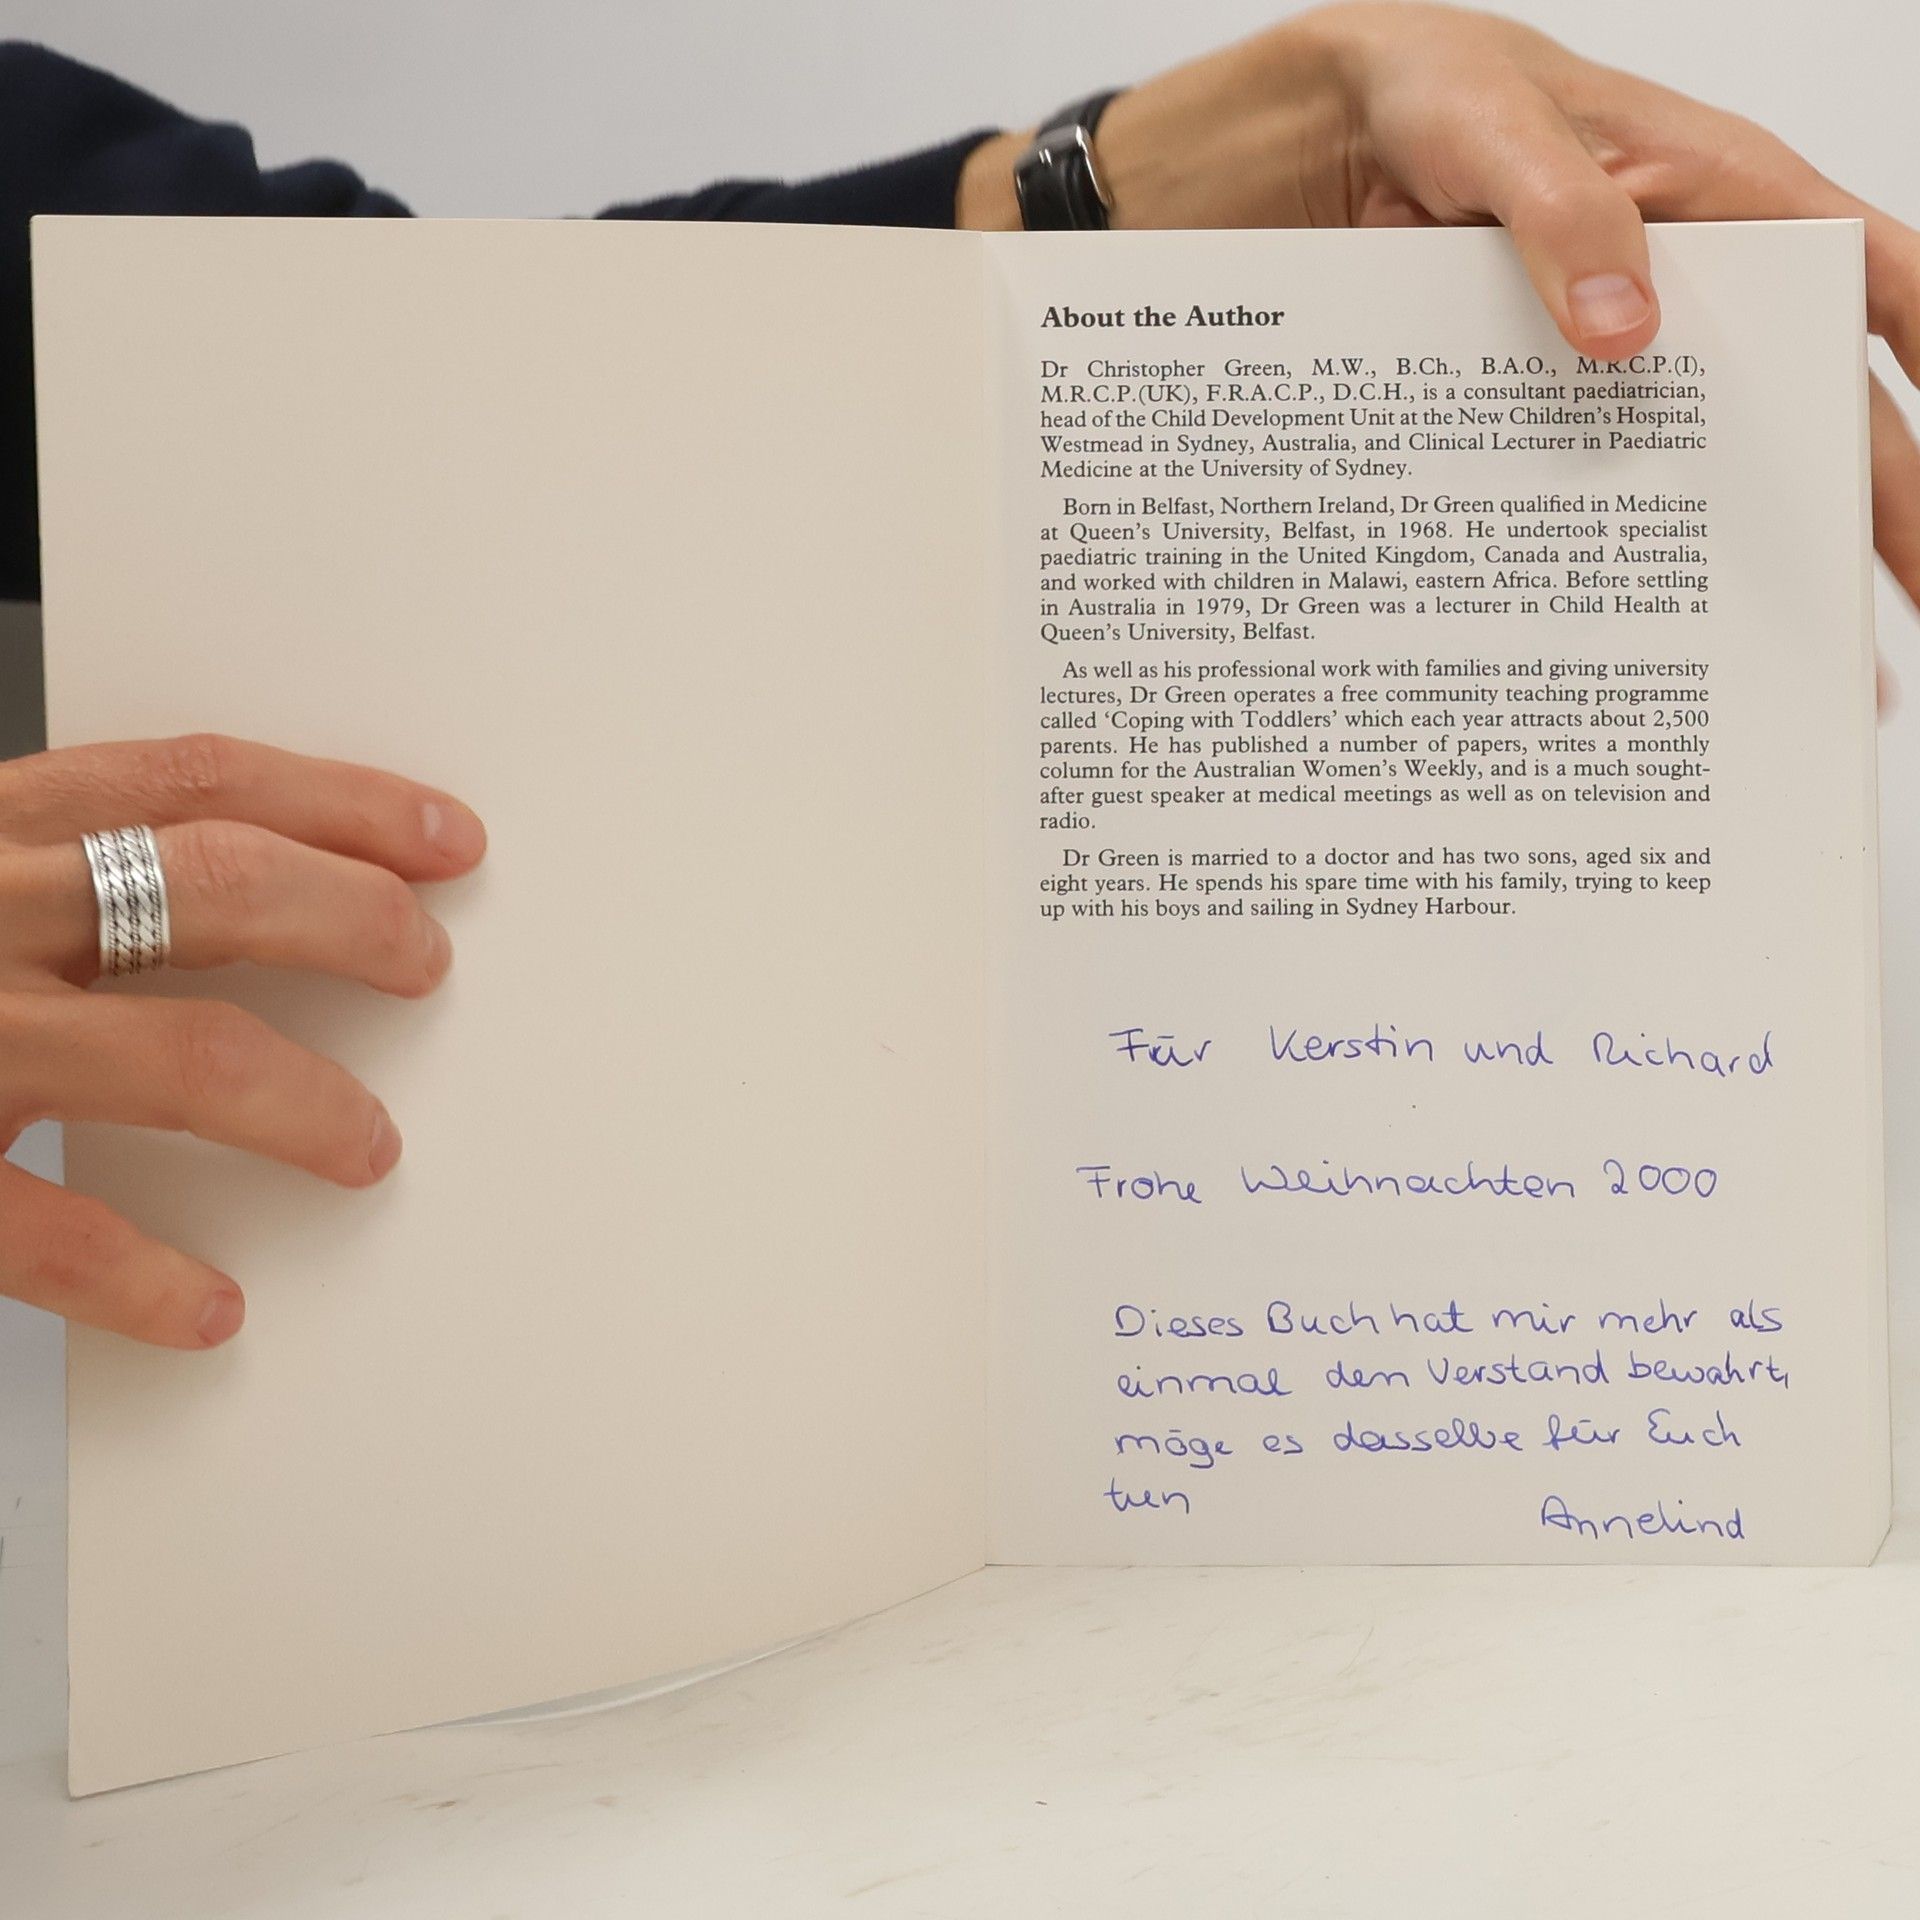 About the Author
Dr Christopher Green, M.W., B.Ch., B.A.O., M.R.C.P.(I),
M.R.C.P.(UK), F.R.A.C.P., D.C.H., is a consultant paediatrician,
head of the Child Development Unit at the New Children's Hospital,
Westmead in Sydney, Australia, and Clinical Lecturer in Paediatric
Medicine at the University of Sydney.
Born in Belfast, Northern Ireland, Dr Green qualified in Medicine
at Queen's University, Belfast, in 1968. He undertook specialist
paediatric training in the United Kingdom, Canada and Australia,
and worked with children in Malawi, eastern Africa. Before settling
in Australia in 1979, Dr Green was a lecturer in Child Health at
Queen's University, Belfast.
As well as his professional work with families and giving university
lectures, Dr Green operates a free community teaching programme
called 'Coping with Toddlers' which each year attracts about 2,500
parents. He has published a number of papers, writes a monthly
column for the Australian Women's Weekly, and is a much sought-
after guest speaker at medical meetings as well as on television and
radio.
Dr Green is married to a doctor and has two sons, aged six and
eight years. He spends his spare time with his family, trying to keep
up with his boys and sailing in Sydney Harbour.
Für Kerstin und Richard
Frohe Weihnachten 2000
Dieses Buch hat mir mehr als
einmal den Verstand bewahrt,
möge es dasselbe für Euch
tun
Annelind